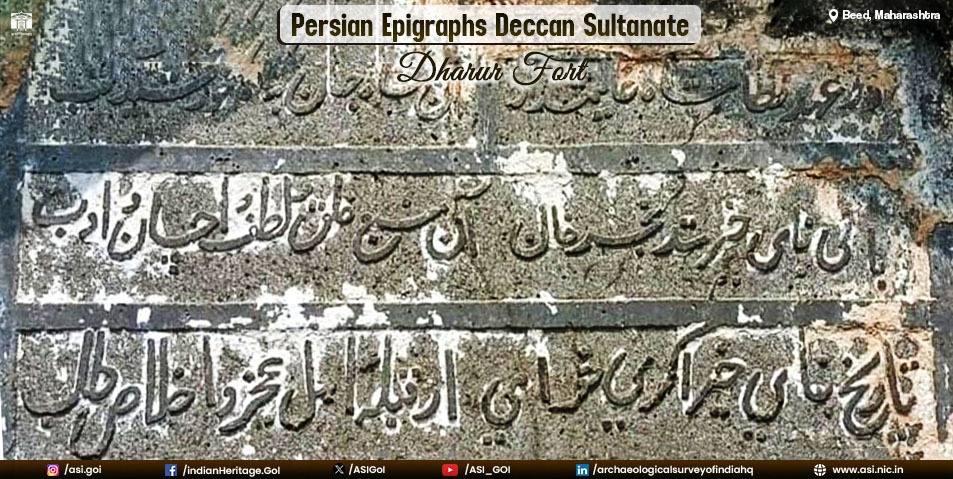 Persian Epigraphs Deccan Sultanate
Beed, Maharashtra
Dharur Fort
در عهد شاه
بانی بنای خیر شد خان آن منبع خلق و لطف و احسان و ادب
تاریخ بنای خیر اگر می خواهی از قبله اهل عجز و اخلاص طلب
/asi.goi /indianHeritage.GoI /ASIGoI /ASI_GOI /archaeologicalsurveyofindiahq www.asi.nic.in